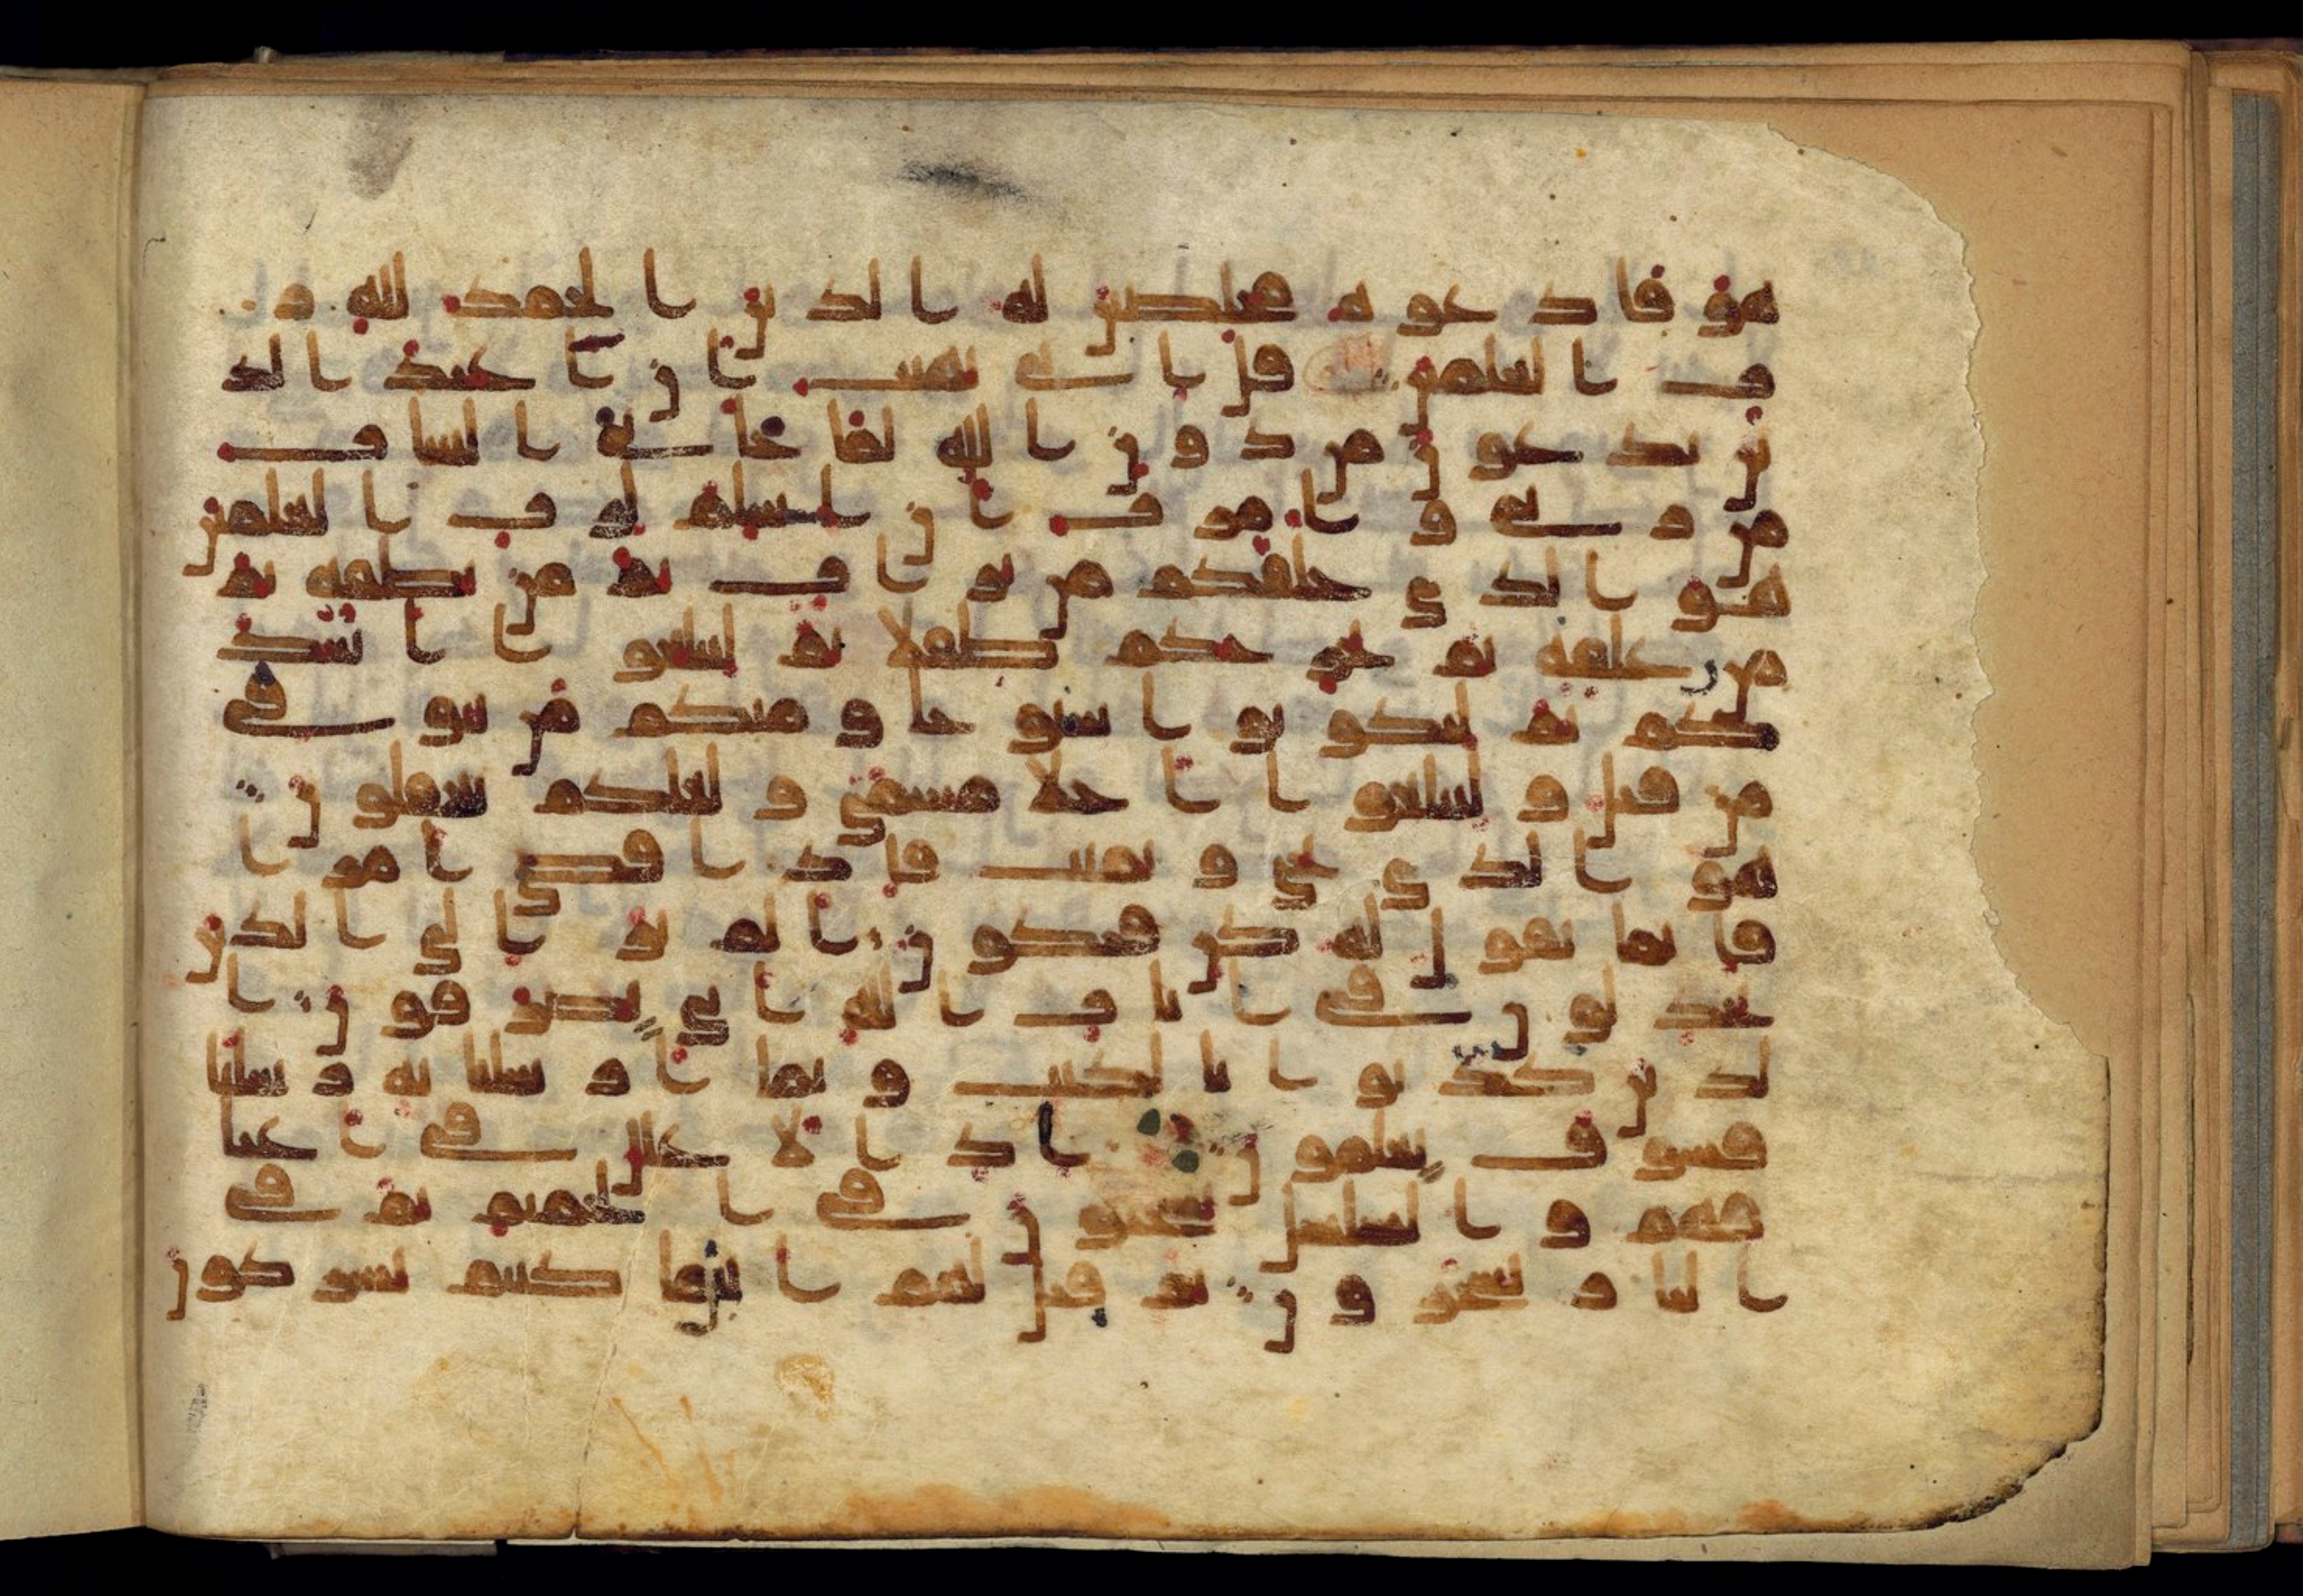 هو فادعوه مخلصين له الدين الحمد لله ر
ب العلمين قل اني نهيت ان اعبد الذ
ين تدعون من دون الله لما جاني البينات
من ربي وامرت ان اسلم لرب العلمين
هو الذي خلقكم من تراب ثم من نطفه ثم
من علقه ثم يخرجكم طفلا ثم لتبلغوا اشد
كم ثم لتكونوا شيوخا ومنكم من يتوفى
من قبل ولتبلغوا اجلا مسمى ولعلكم تعقلون
هو الذي يحي ويميت فاذا قضى امرا
فانما يقول له كن فيكون الم تر الى الذين
يجدلون في ايات الله انى يصرفون ا
لذين كذبوا بالكتب وبما ارسلنا به رسلنا
فسوف يعلمون اذ الاغلل في اعنا
قهم والسلسل يسحبون في الحميم ثم في
النار يسجرون ثم قيل لهم اينما كنتم تشركون